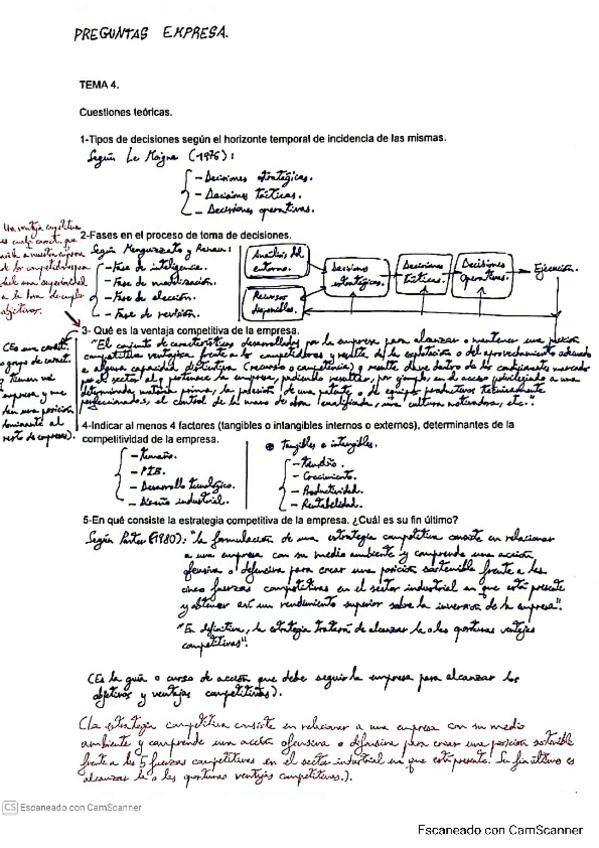 PREGUNTAS EMPRESA.
TEMA 4.
Cuestiones teóricas.
1-Tipos de decisiones según el horizonte temporal de incidencia de las mismas.
Según Le Moigne (1976):
- Decisiones estratégicas.
- Decisiones tácticas.
- Decisiones operativas.
2-Fases en el proceso de toma de decisiones.
Según Menguzzato y Renau:
- Fase de inteligencia.
- Fase de modelización.
- Fase de elección.
- Fase de revisión.
Análisis del entorno.
Recursos disponibles.
Decisiones estratégicas.
Decisiones tácticas.
Decisiones operativas.
Ejecución.
Una ventaja competitiva
es cualq. caract. que
a nuestra empresa
de los competidores
una superioridad
a la hora de cumplir
objetivos.
3- Qué es la ventaja competitiva de la empresa.
"El conjunto de características desarrolladas por la empresa para alcanzar o mantener una posición
competitiva ventajosa frente a los competidores y resulta de la explotación o del aprovechamiento adecuado
a alguna capacidad distintiva (recurso o competencia) y resulte clave dentro de los
al q pertenece la empresa, pudiendo resultar, por ejemplo, en el acceso privilegiado a una
determinada materia prima, la posesión de una patente, o de equipos productivos técnicamente
perfeccionados, el control de la mano de obra cualificada, una cultura motivadora, etc."
(Es una caract.
o grupo de caract.
tienen mi
empresa y me
dan una posición
dominante al
resto de empresas).
4-Indicar al menos 4 factores (tangibles o intangibles internos o externos), determinantes de la
competitividad de la empresa.
- Tamaño.
- PIB.
- Desarrollo tecnológico.
- Diseño industrial.
Tangibles e intangibles.
- Tamaño.
- Crecimiento.
- Productividad.
- Rentabilidad.
5-En qué consiste la estrategia competitiva de la empresa. ¿Cuál es su fin último?
Según Porter (1980): "la formulación de una estrategia competitiva consiste en relacionar
a una empresa con su medio ambiente y comprende una acción
ofensiva o defensiva para crear una posición sostenible frente a las
cinco fuerzas competitivas en el sector industrial en que está presente
y obtener así un rendimiento superior sobre la inversión de la empresa".
"En definitiva, la estrategia tratará de alcanzar la o las oportunas ventajas
competitivas".
(Es la guía o curso de acción que debe seguir la empresa para alcanzar los
objetivos y ventajas competitivas).
(La estrategia competitiva consiste en relacionar a una empresa con su medio
ambiente y comprende una acción ofensiva o defensiva para crear una posición sostenible
frente a las 5 fuerzas competitivas en el sector industrial en que está presente. Su fin último es
alcanzar la o las oportunas ventajas competitivas.).
CS Escaneado con CamScanner
Escaneado con CamScanner